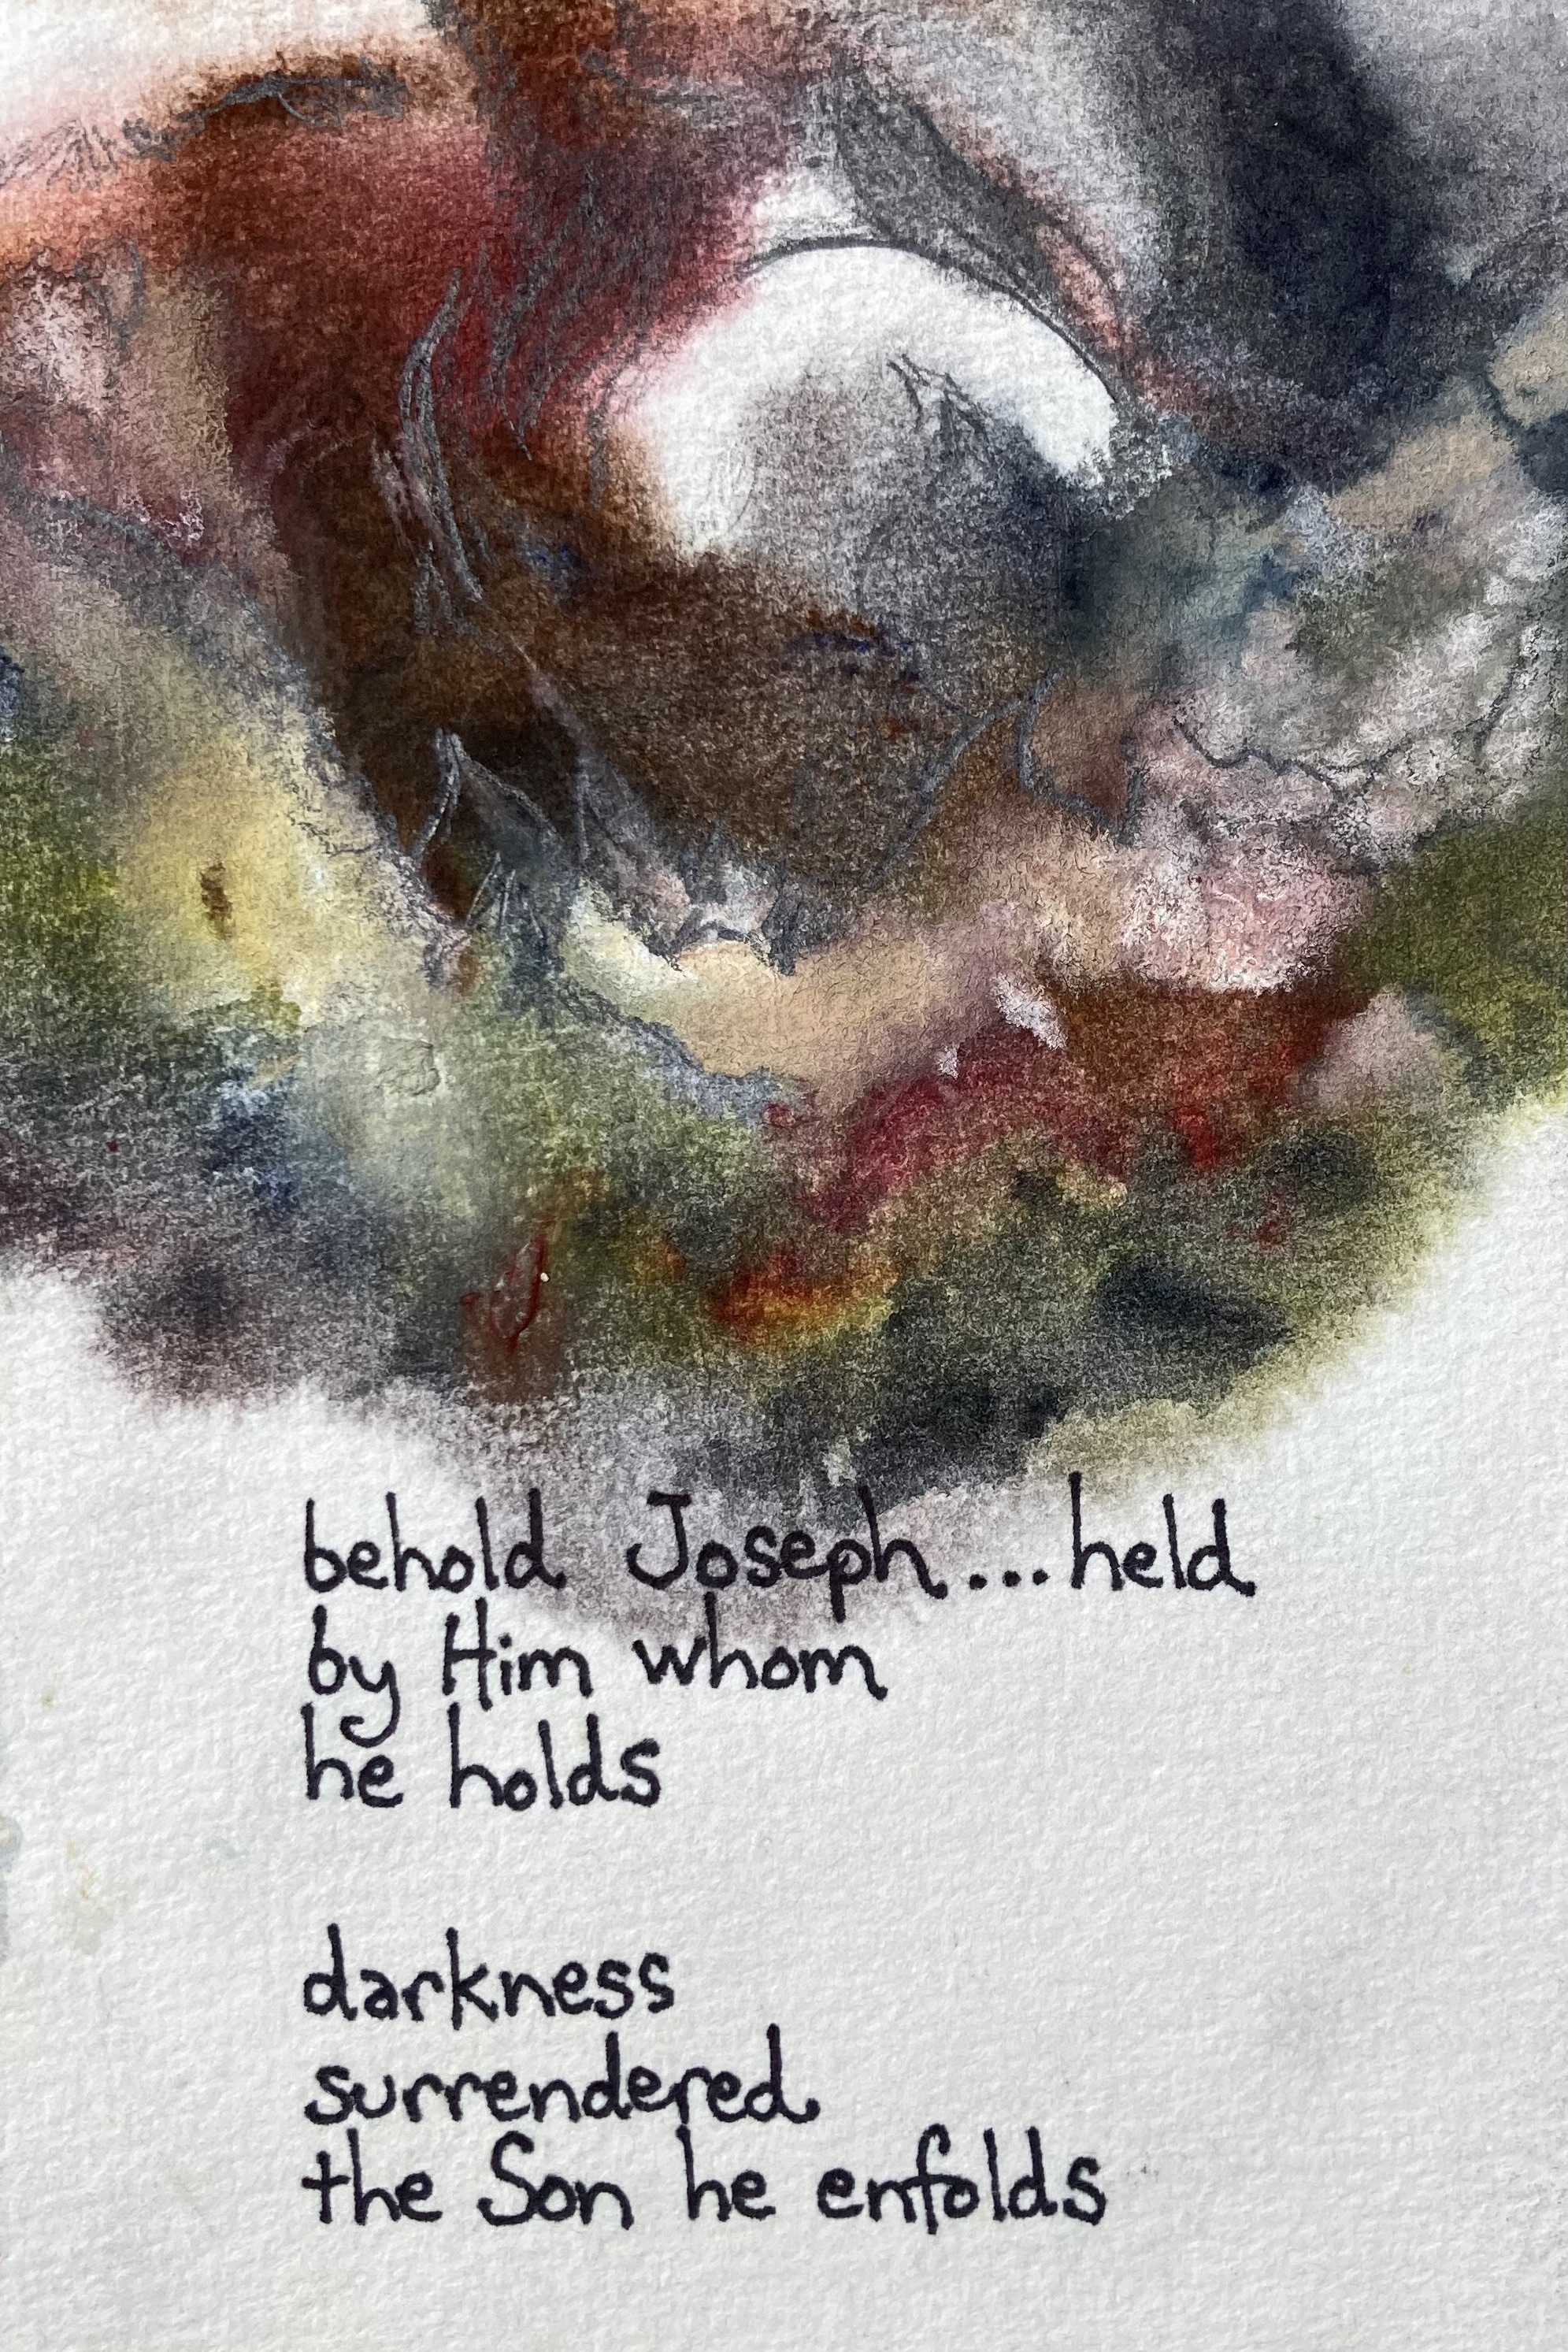 behold Joseph...held
by Him whom
he holds
darkness
surrendered
the Son he enfolds